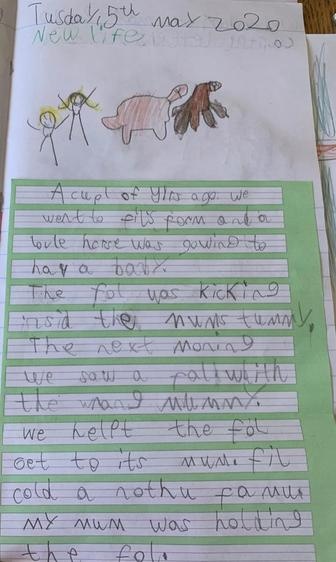 Tusday, 5th may 2020
New life
A cupl of yirs ago we
went to fil's farm and a
horse was gowing to
hay a baby.
The fol was kicking
insid the mums tummy,
The next moning
we saw a fall whith
the mummy.
we helpt the fol
get to its mum. fil
cold a nothu famu.
my mum was holding
the fol.